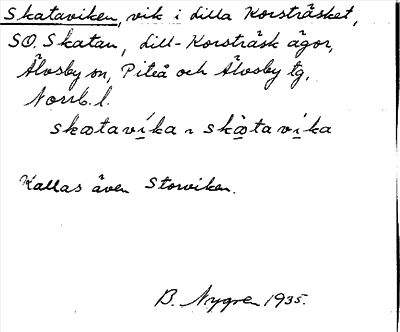 Skataviken, vik i Lilla Korsträsket,
SO. Skatan, Lill-Korsträsk ägor,
Älvsby sn, Piteå och Älvsby tg,
Norrb. l.
skatavika ~ skàtavíka
Kallas även Storviken.
B. Nygren 1935.